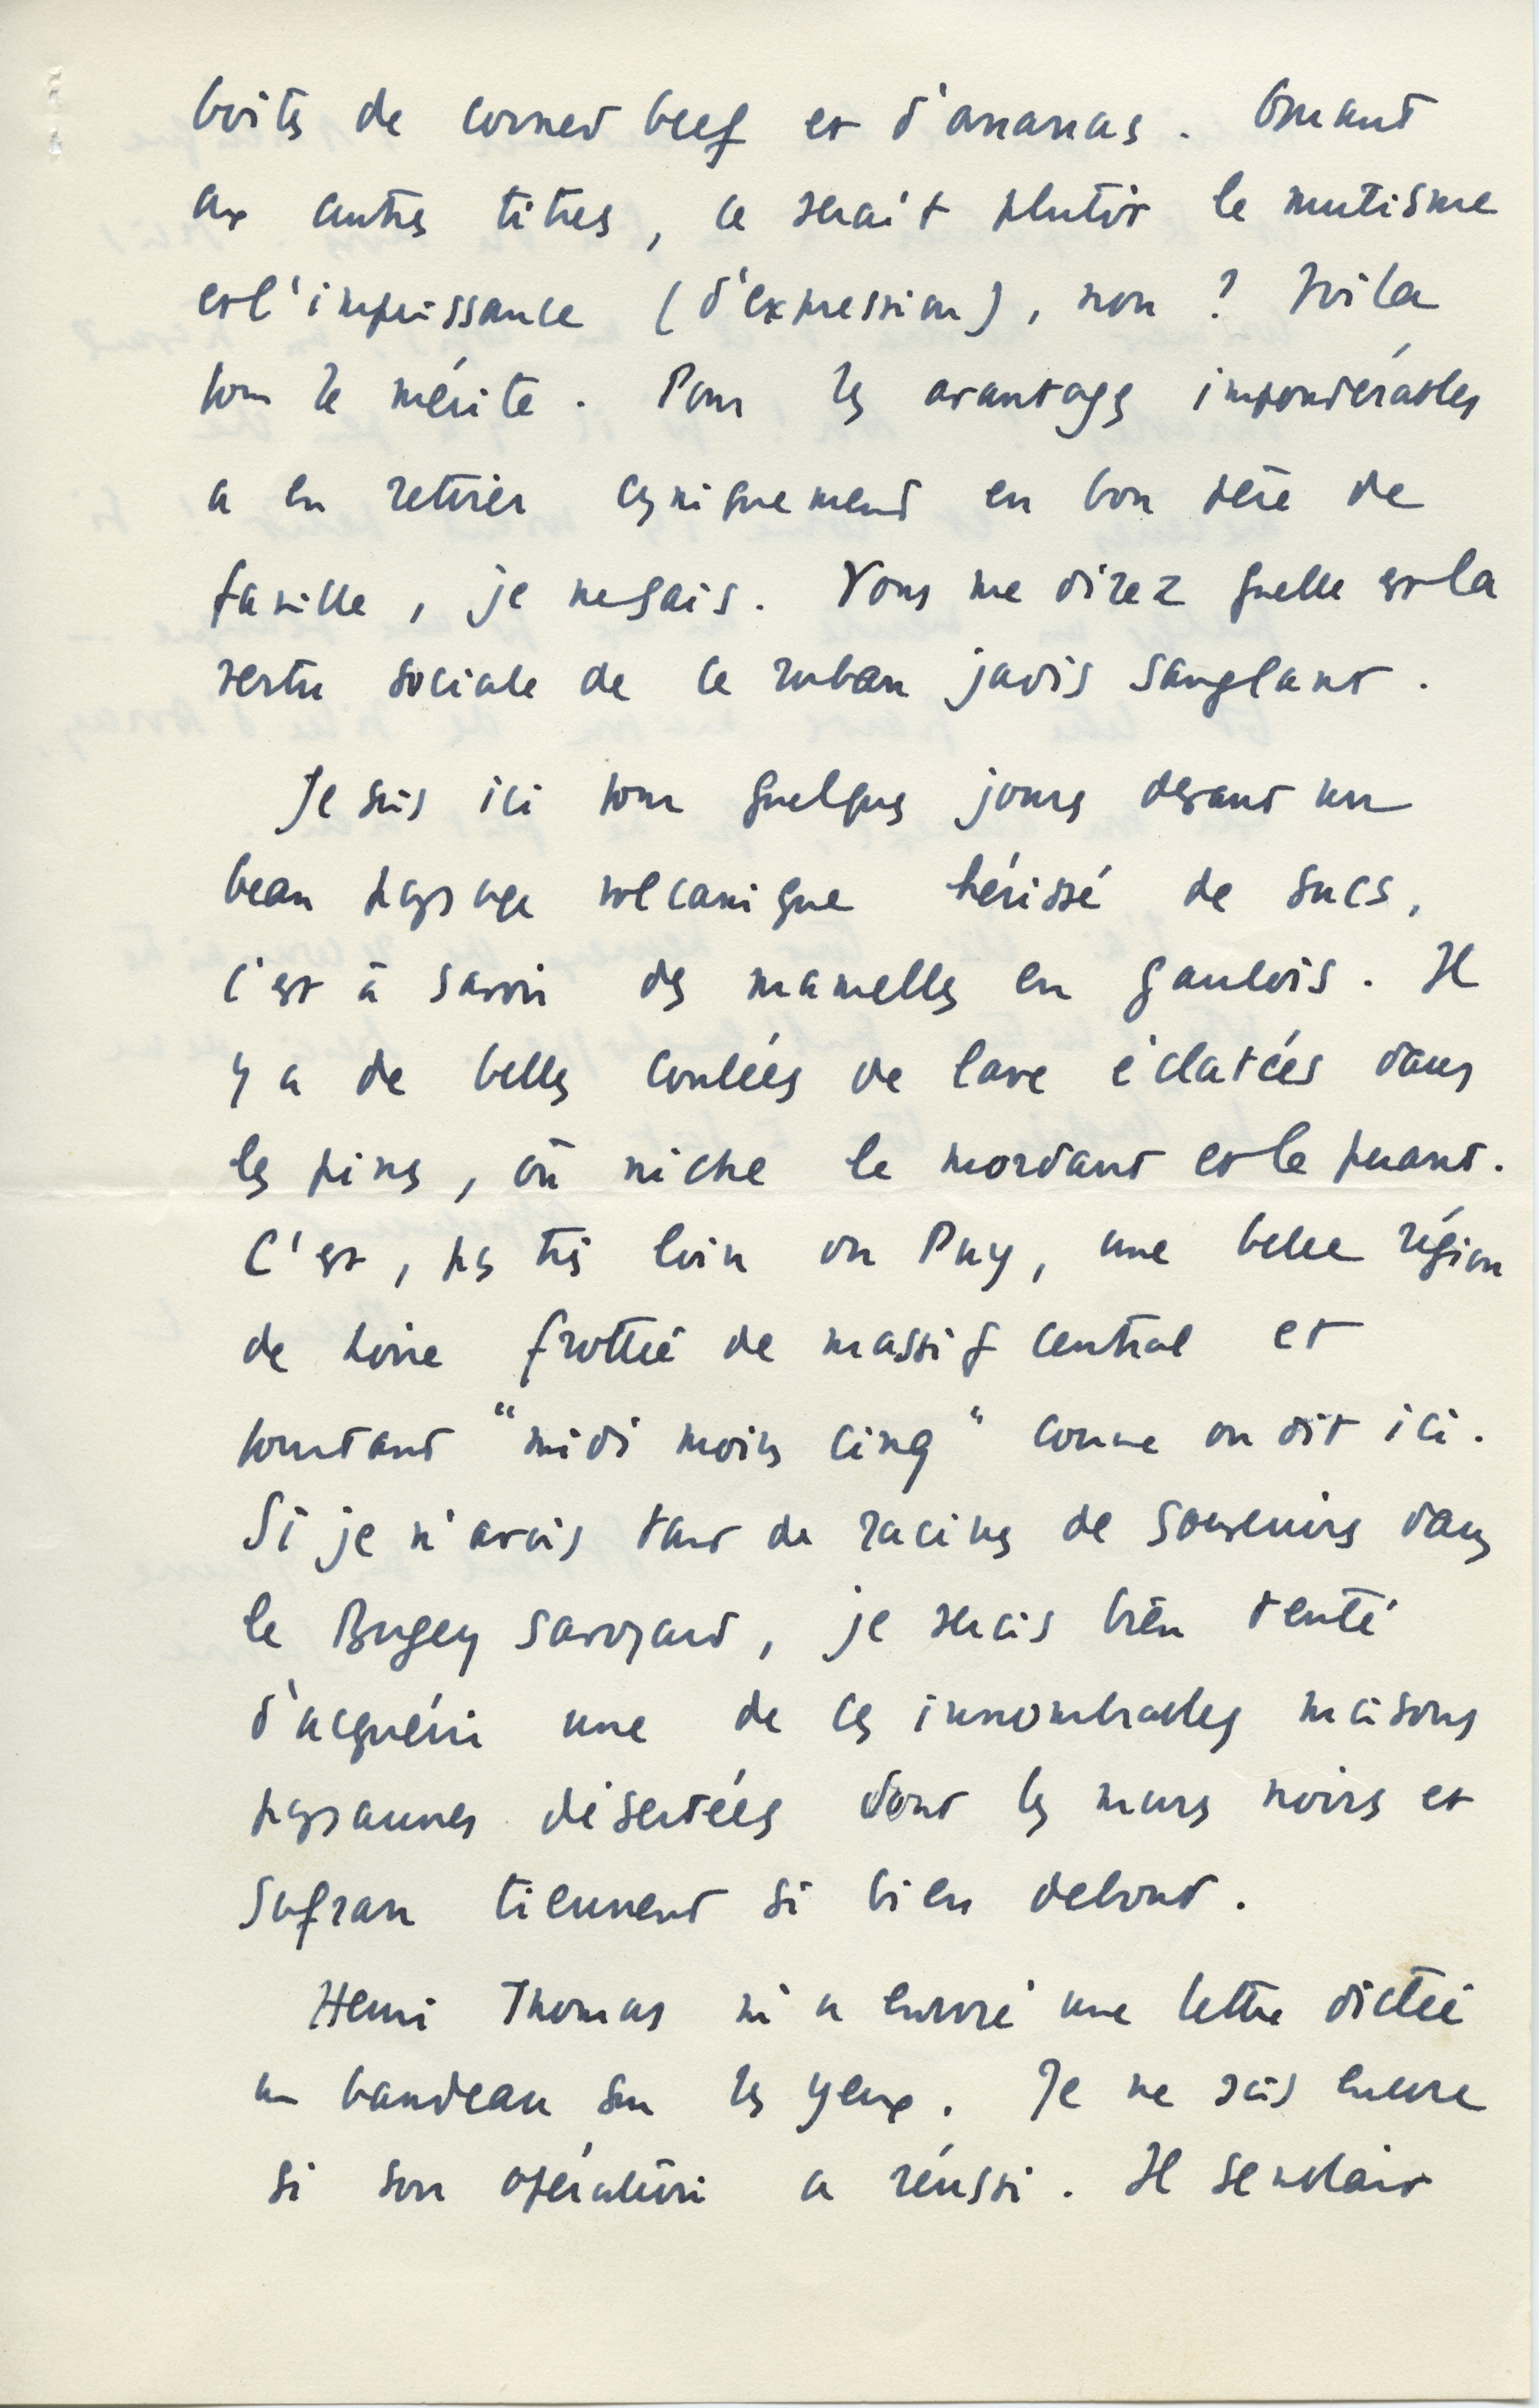 boites de corned beef et d'ananas. Quant
aux autres titres, ce serait plutôt le mutisme
et l'impuissance (d'expression), non ? Voila
pour le mérite. Pour les avantages impondérables
a en retirer cyniquement en bon père de
famille, je ne sais. Vous me direz quelle est la
vertu sociale de ce ruban jadis sanglant.
Je suis ici pour quelques jours devant un
beau paysage volcanique hérissé de sucs,
c'est à savoir des mamelles en gaulois. Il
y a de belles coulées de lave éclatées dans
les pins, où niche le mordant et le puant.
C'est, pas très loin du Puy, une belle région
de Loire frottée de massif central et
pourtant "midi moins cinq" comme on dit ici.
Si je n'avais tant de racines de souvenirs dans
le Bugey savoyard, je serais bien tenté
d'acquérir une de ces innombrables maisons
paysannes désertées dont les murs noirs et
safran tiennent si bien debout.
Henri Thomas m'a envoyé une lettre dictée
un bandeau sur les yeux. Je ne sais encore
si son opération a réussi. Il semblait